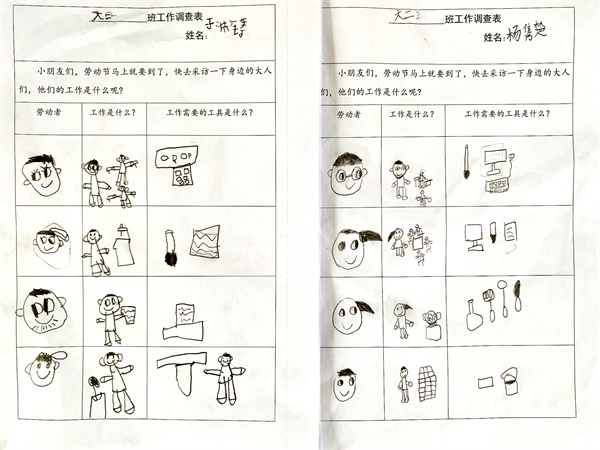 大二班工作调查表
姓名:
小朋友们，劳动节马上就要到了，快去采访一下身边的大人
们，他们的工作是什么呢?
劳动者 工作是什么? 工作需要的工具是什么?
大二 班工作调查表
姓名: 杨隽楚
小朋友们，劳动节马上就要到了，快去采访一下身边的大人
们，他们的工作是什么呢?
劳动者 工作是什么? 工作需要的工具是什么?